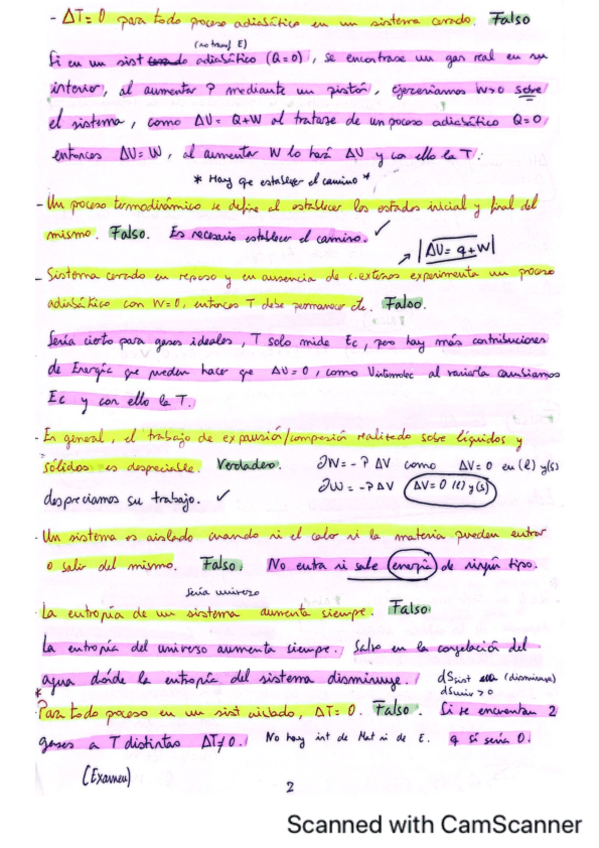 - ΔT = 0 para todo proceso adiabático en un sistema cerrado. Falso
(no transf E)
Si en un sist adiabático (Q=0), se encontrase un gas real en su
interior, al aumentar P mediante un pistón, ejerceríamos W>0 sobre
el sistema, como ΔU = Q+W al tratarse de un proceso adiabático Q=0
entonces ΔU=W, al aumentar W lo hará ΔU y con ello la T.
* Hay que establecer el camino *
- Un proceso termodinámico se define al establecer los estados inicial y final del
mismo. Falso. Es necesario establecer el camino. ✓
→ |ΔU = q+W|
- Sistema cerrado en reposo y en ausencia de c.externos experimenta un proceso
adiabático con W=0, entonces T debe permanecer cte. Falso.
Sería cierto para gases ideales, T solo mide Ec, pero hay más contribuciones
de Energía que pueden hacer que ΔU=0, como Uintermolec al variarla cambiamos
Ec y con ello la T.
- En general, el trabajo de expansión/compresión realizado sobre líquidos y
sólidos es despreciable. Verdadero. ∂W=-P ΔV como ΔV=0 en (l) y (s)
despreciamos su trabajo. ✓ ∂W = -P ΔV ΔV=0 (l) y (s)
- Un sistema es aislado cuando ni el calor ni la materia pueden entrar
o salir del mismo. Falso. No entra ni sale energía de ningún tipo.
Sería universo
- La entropía de un sistema aumenta siempre. Falso
La entropía del universo aumenta siempre. Salvo en la congelación del
agua donde la entropía del sistema disminuye. dSsist (disminuye)
dSuniv > 0
* - Para todo proceso en un sist aislado, ΔT = 0. Falso. Si se encuentran 2
gases a T distintas ΔT≠0. No hay int de Mat ni de E. q sí sería 0.
(Examen)
2
Scanned with CamScanner